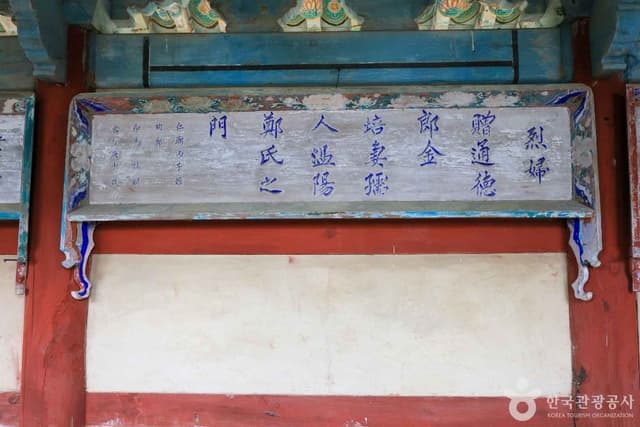 烈婦
贈通德
郎金
培妻孺
人溫陽
鄭氏之
門
한국관광공사
KOREA TOURISM ORGANIZATION